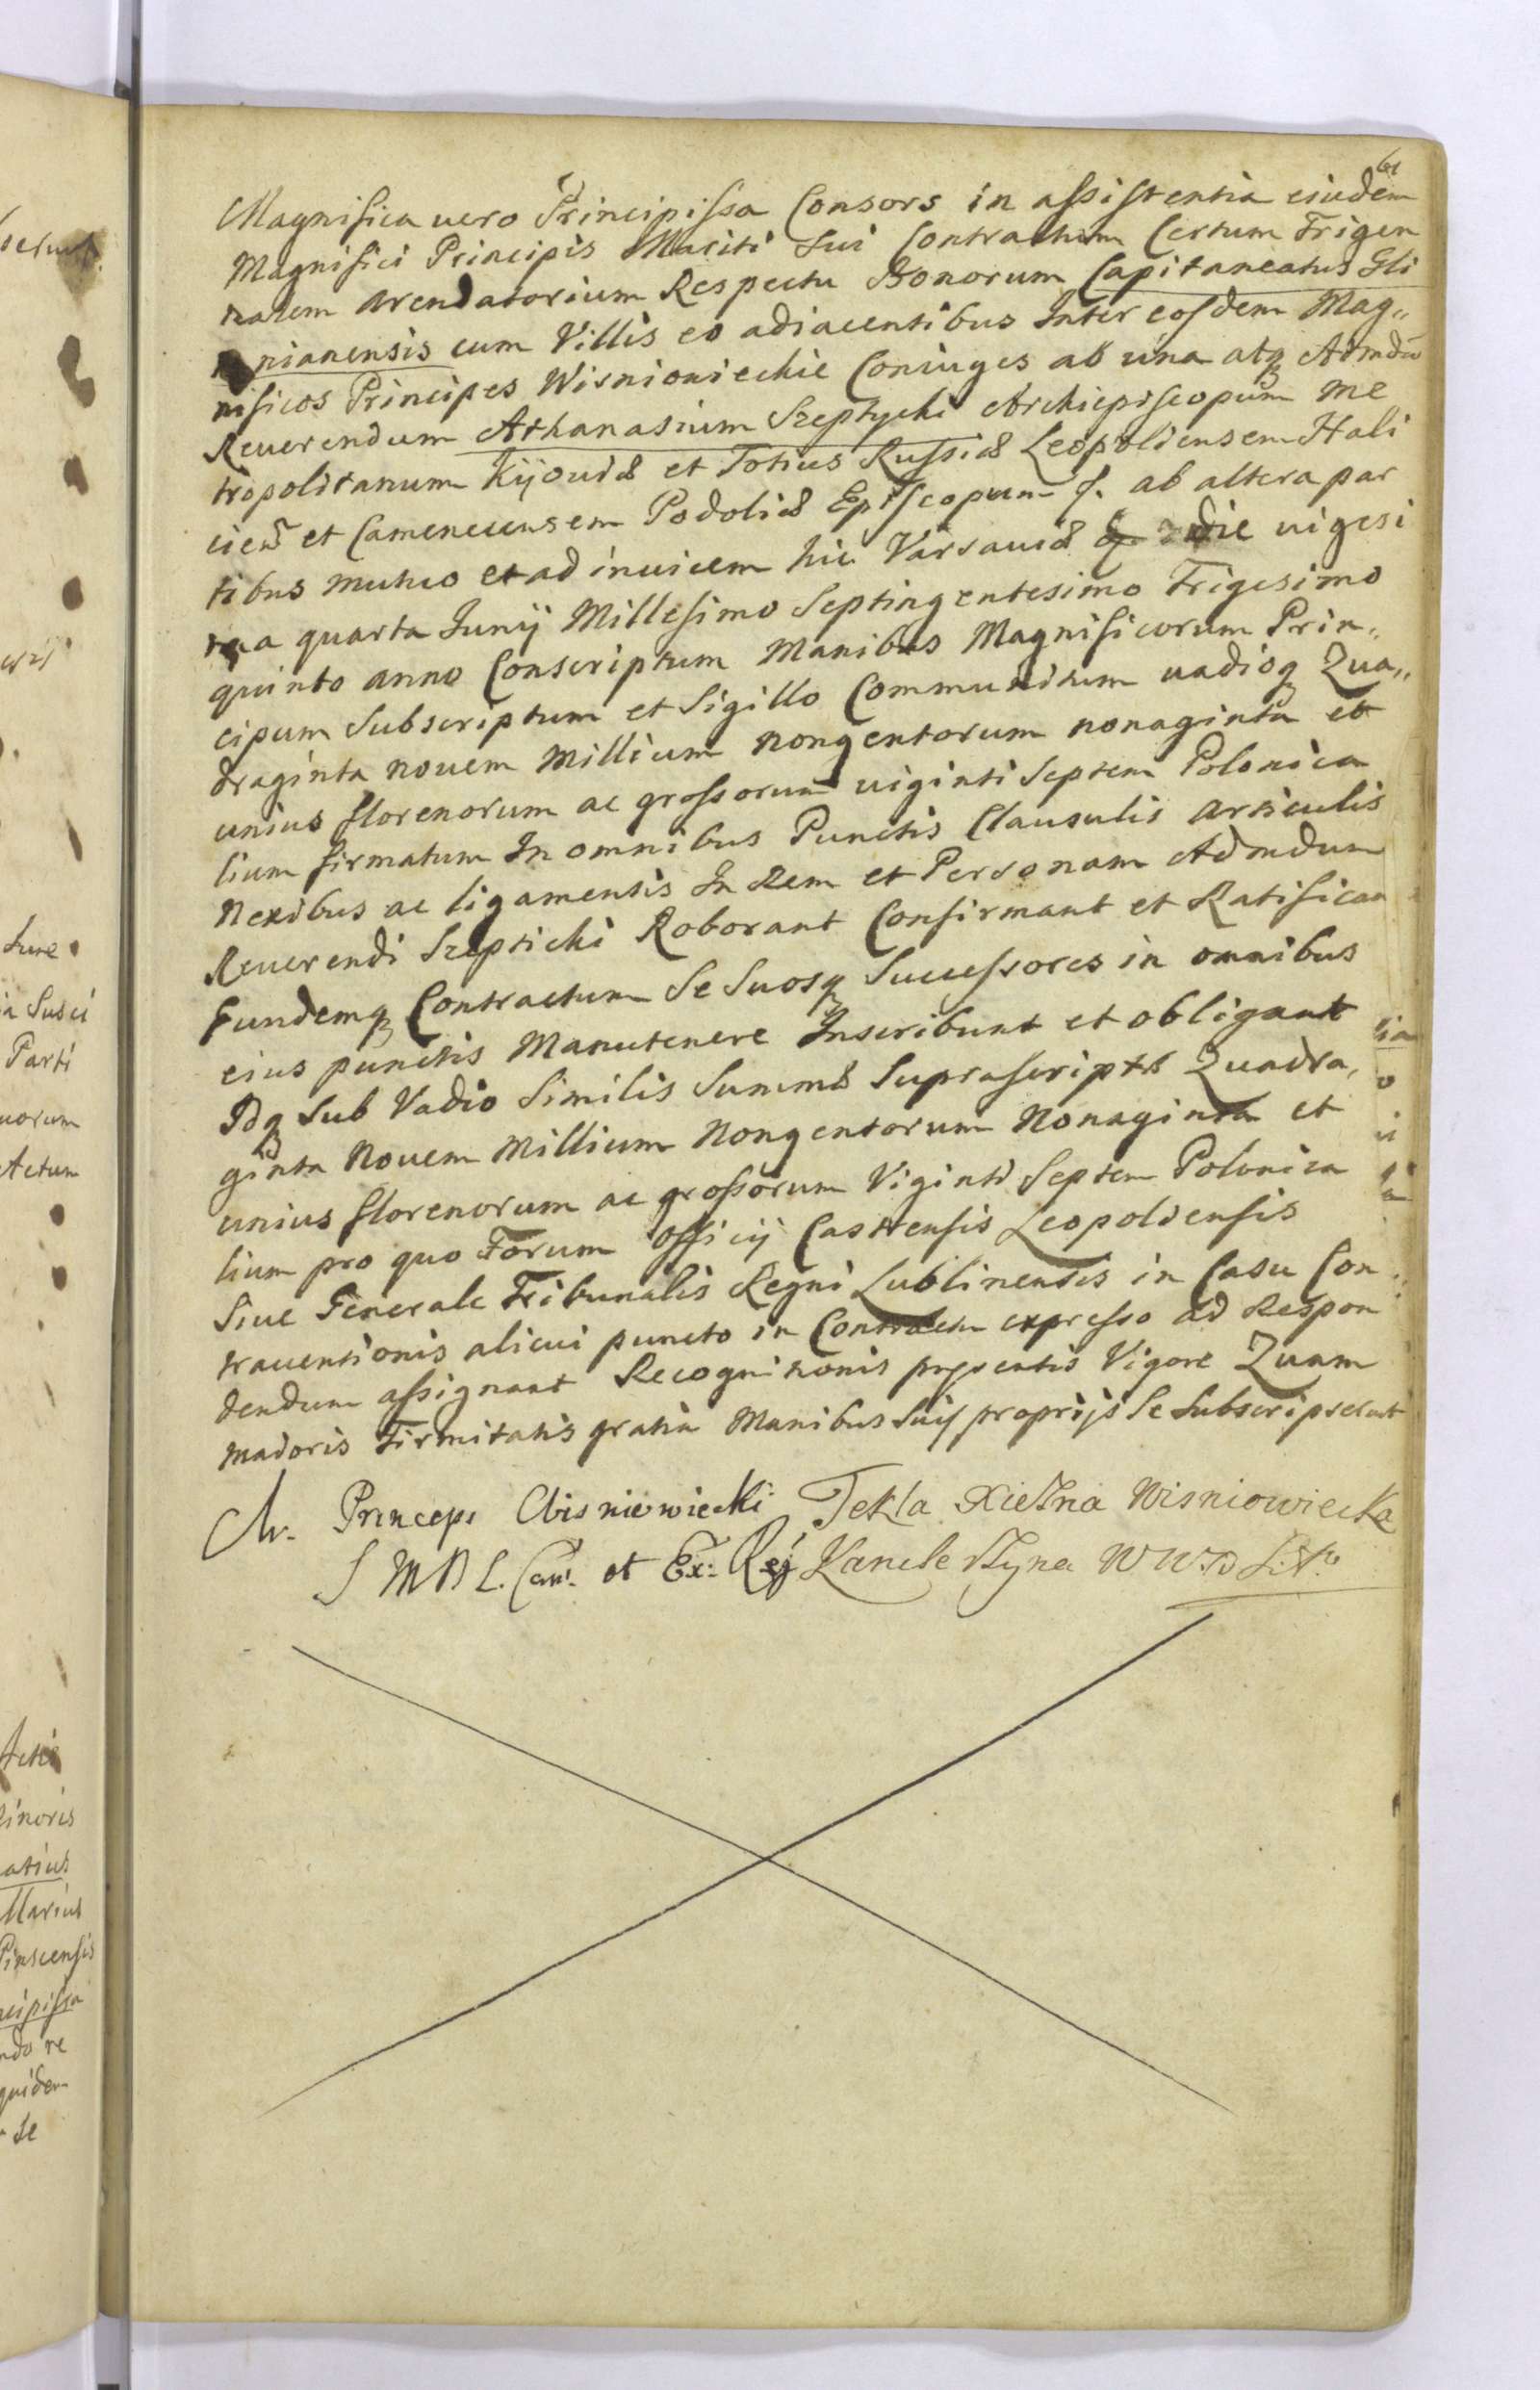 61
Magnifica uero Principissa Consors in assistentia eiusdem
Magnifici Principis Mariti Sui Contractum Certum Trigen
nalem arendatorium Respectu Bonorum Capitaneatus Gli
nianensis cum Villis eo adiacentibus Inter eosdem Mag„
nificos Principes Wisnioniechie Coniuges ab una atq Admdū
Reuerendum Athanasium Szeptycki Archiepiscopum Me
tropolitanum Kijouiæ et Totius Russiæ Leopoliensem Hali
cien̄ et Camenecensem Podoliæ Episcopum ab altera par
tibus mutuo et ad inuicem hic Varsauiæ die uigesi
ma quarta Junij Millesimo Septingentesimo Trigesimo
quinto anno Conscriptum Manibus Magnificorum Prin„
cipum Subscriptum et Sigillo Communitum uadioq Qua„
draginta nouem Millium nongentorum nonaginta et
unius florenorum ac grossorum uiginti Septem Polonica
lium firmatum In omnibus Punctis Clausulis articulis
Nexibus ac ligamentis In Rem et Personam Admdum
Reuerendi Szepticki Roborant Confirmant et Ratifican
Eundemq Contractum Se Suosq Successores in omnibus
eius punctis Manutenere Inscribunt et obligant
Idq Sub Vadio Similis Summæ Suprascriptæ Quadra,
ginta Nouem Millium Nongentorum Nonaginta et
unius florenorum ac grossorum Viginti Septem Polonica
lium pro quo Forum Officij Castrensis Leopoldensis
Siue Generale Tribunalis Regni Lublinensis in Casu Con
trauentionis alicui puncto in Contractu expresso ad Respon
dendum assignant Recognitionis præsentis Vigore Quam
Madoris Firmitatis gratia Manibus Suis proprijs Se Subscripserunt
M. Princeps Wisniowiecki Tekla Xiezna Wisniowiecka
S M D L. Can. et Ex: Rej Kancle rzyna W W. D Lit.